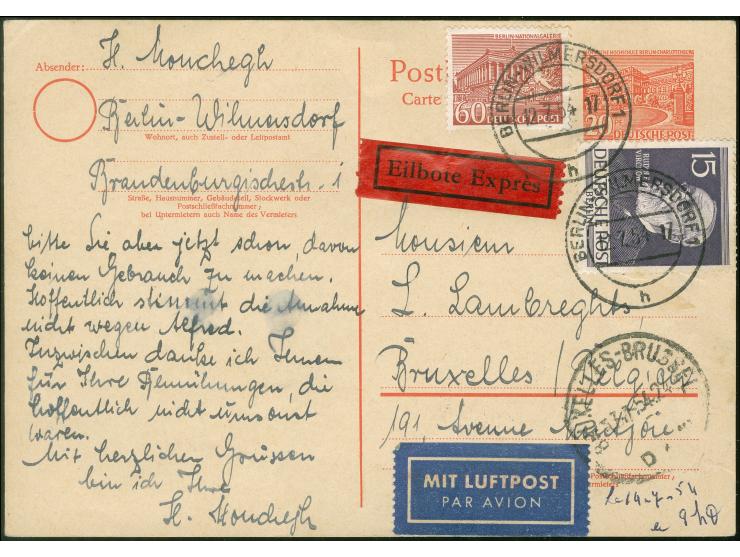 Absender:
H. Monchegh
Berlin-Wilmersdorf
Wohnort, auch Zustell- oder Leitpostamt
Brandenburgischestr. 1
Straße, Hausnummer, Gebäudeteil, Stockwerk oder
Postschließfachnummer;
bei Untermietern auch Name des Vermieters
bitte Sie aber jetzt schon, davon
keinen Gebrauch zu machen.
Hoffentlich stimmt die Annahme
nicht wegen Alfred.
Inzwischen danke ich Ihnen
für Ihre Bemühungen, die
hoffentlich nicht umsonst
waren.
Mit herzlichen Grüssen
bin ich Ihre
H. Monchegh
Post
Carte
BERLIN-NATIONALGALERIE
60
DEUTSCHE POST
TECHNISCHE HOCHSCHULE BERLIN-CHARLOTTENBURG
20
DEUTSCHE POST
BERLIN-WILMERSDORF 1
h
15
DEUTSCHE POST
BERLIN
BERLIN-WILMERSDORF 1
h
Eilbote Exprès
Monsieur
L. Lambreghts
Bruxelles / Belgique
191, Avenue
BRUXELLES-BRUSSEL
D
MIT LUFTPOST
PAR AVION
Le 14-7-54